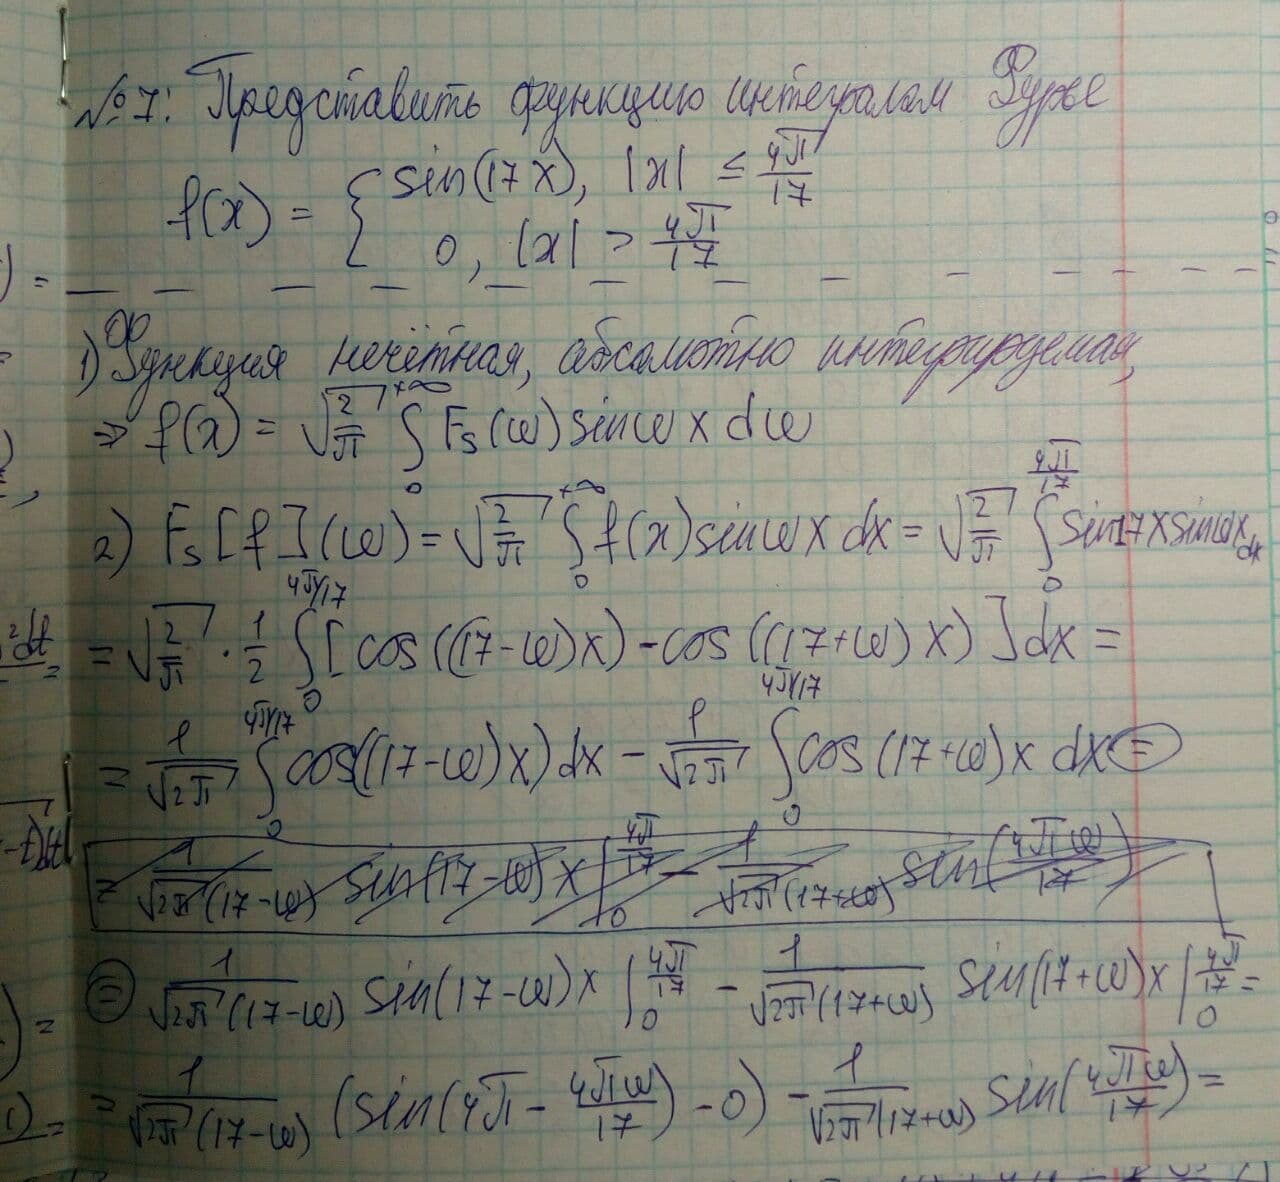 №7: Представить функцию интегралом Фурье
f(x) = { sin(17x), |x| ≤ 4π/17
0, |x| > 4π/17
1) Функция нечётная, абсолютно интегрируемая,
⇒ f(x) = √(2/π) ∫₀^{+∞} Fs(ω) sin ωx dω
2) Fs[f](ω) = √(2/π) ∫₀^{+∞} f(x) sin ωx dx = √(2/π) ∫₀^{4π/17} sin17x sin ωx dx
= √(2/π) · 1/2 ∫₀^{4π/17} [cos((17-ω)x) - cos((17+ω)x)] dx =
= 1/√(2π) ∫₀^{4π/17} cos((17-ω)x) dx - 1/√(2π) ∫₀^{4π/17} cos(17+ω)x dx =
= 1/(√(2π)(17-ω)) sin(17-ω)x |₀^{4π/17} - 1/(√(2π)(17+ω)) sin(4πω/17)
= 1/(√(2π)(17-ω)) sin(17-ω)x |₀^{4π/17} - 1/(√(2π)(17+ω)) sin(17+ω)x |₀^{4π/17} =
= 1/(√(2π)(17-ω)) (sin(4π - 4πω/17) - 0) - 1/(√(2π)(17+ω)) sin(4πω/17) =